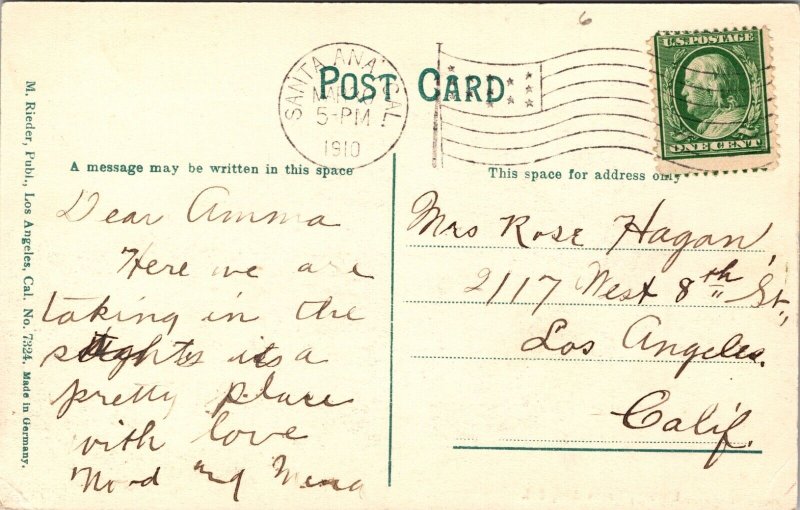 6
SANTA ANA, CAL.
MAR
5-PM
1910
POST CARD
U.S. POSTAGE
ONE CENT
A message may be written in this space
This space for address only
M. Rieder, Publ., Los Angeles, Cal. No. 7324. Made in Germany.
Dear Amma
Here we are
taking in the
sights its a
pretty place
with love
and
Mrs Rose Hagan,
2117 West 8th St.,
Los Angeles.
Calif.